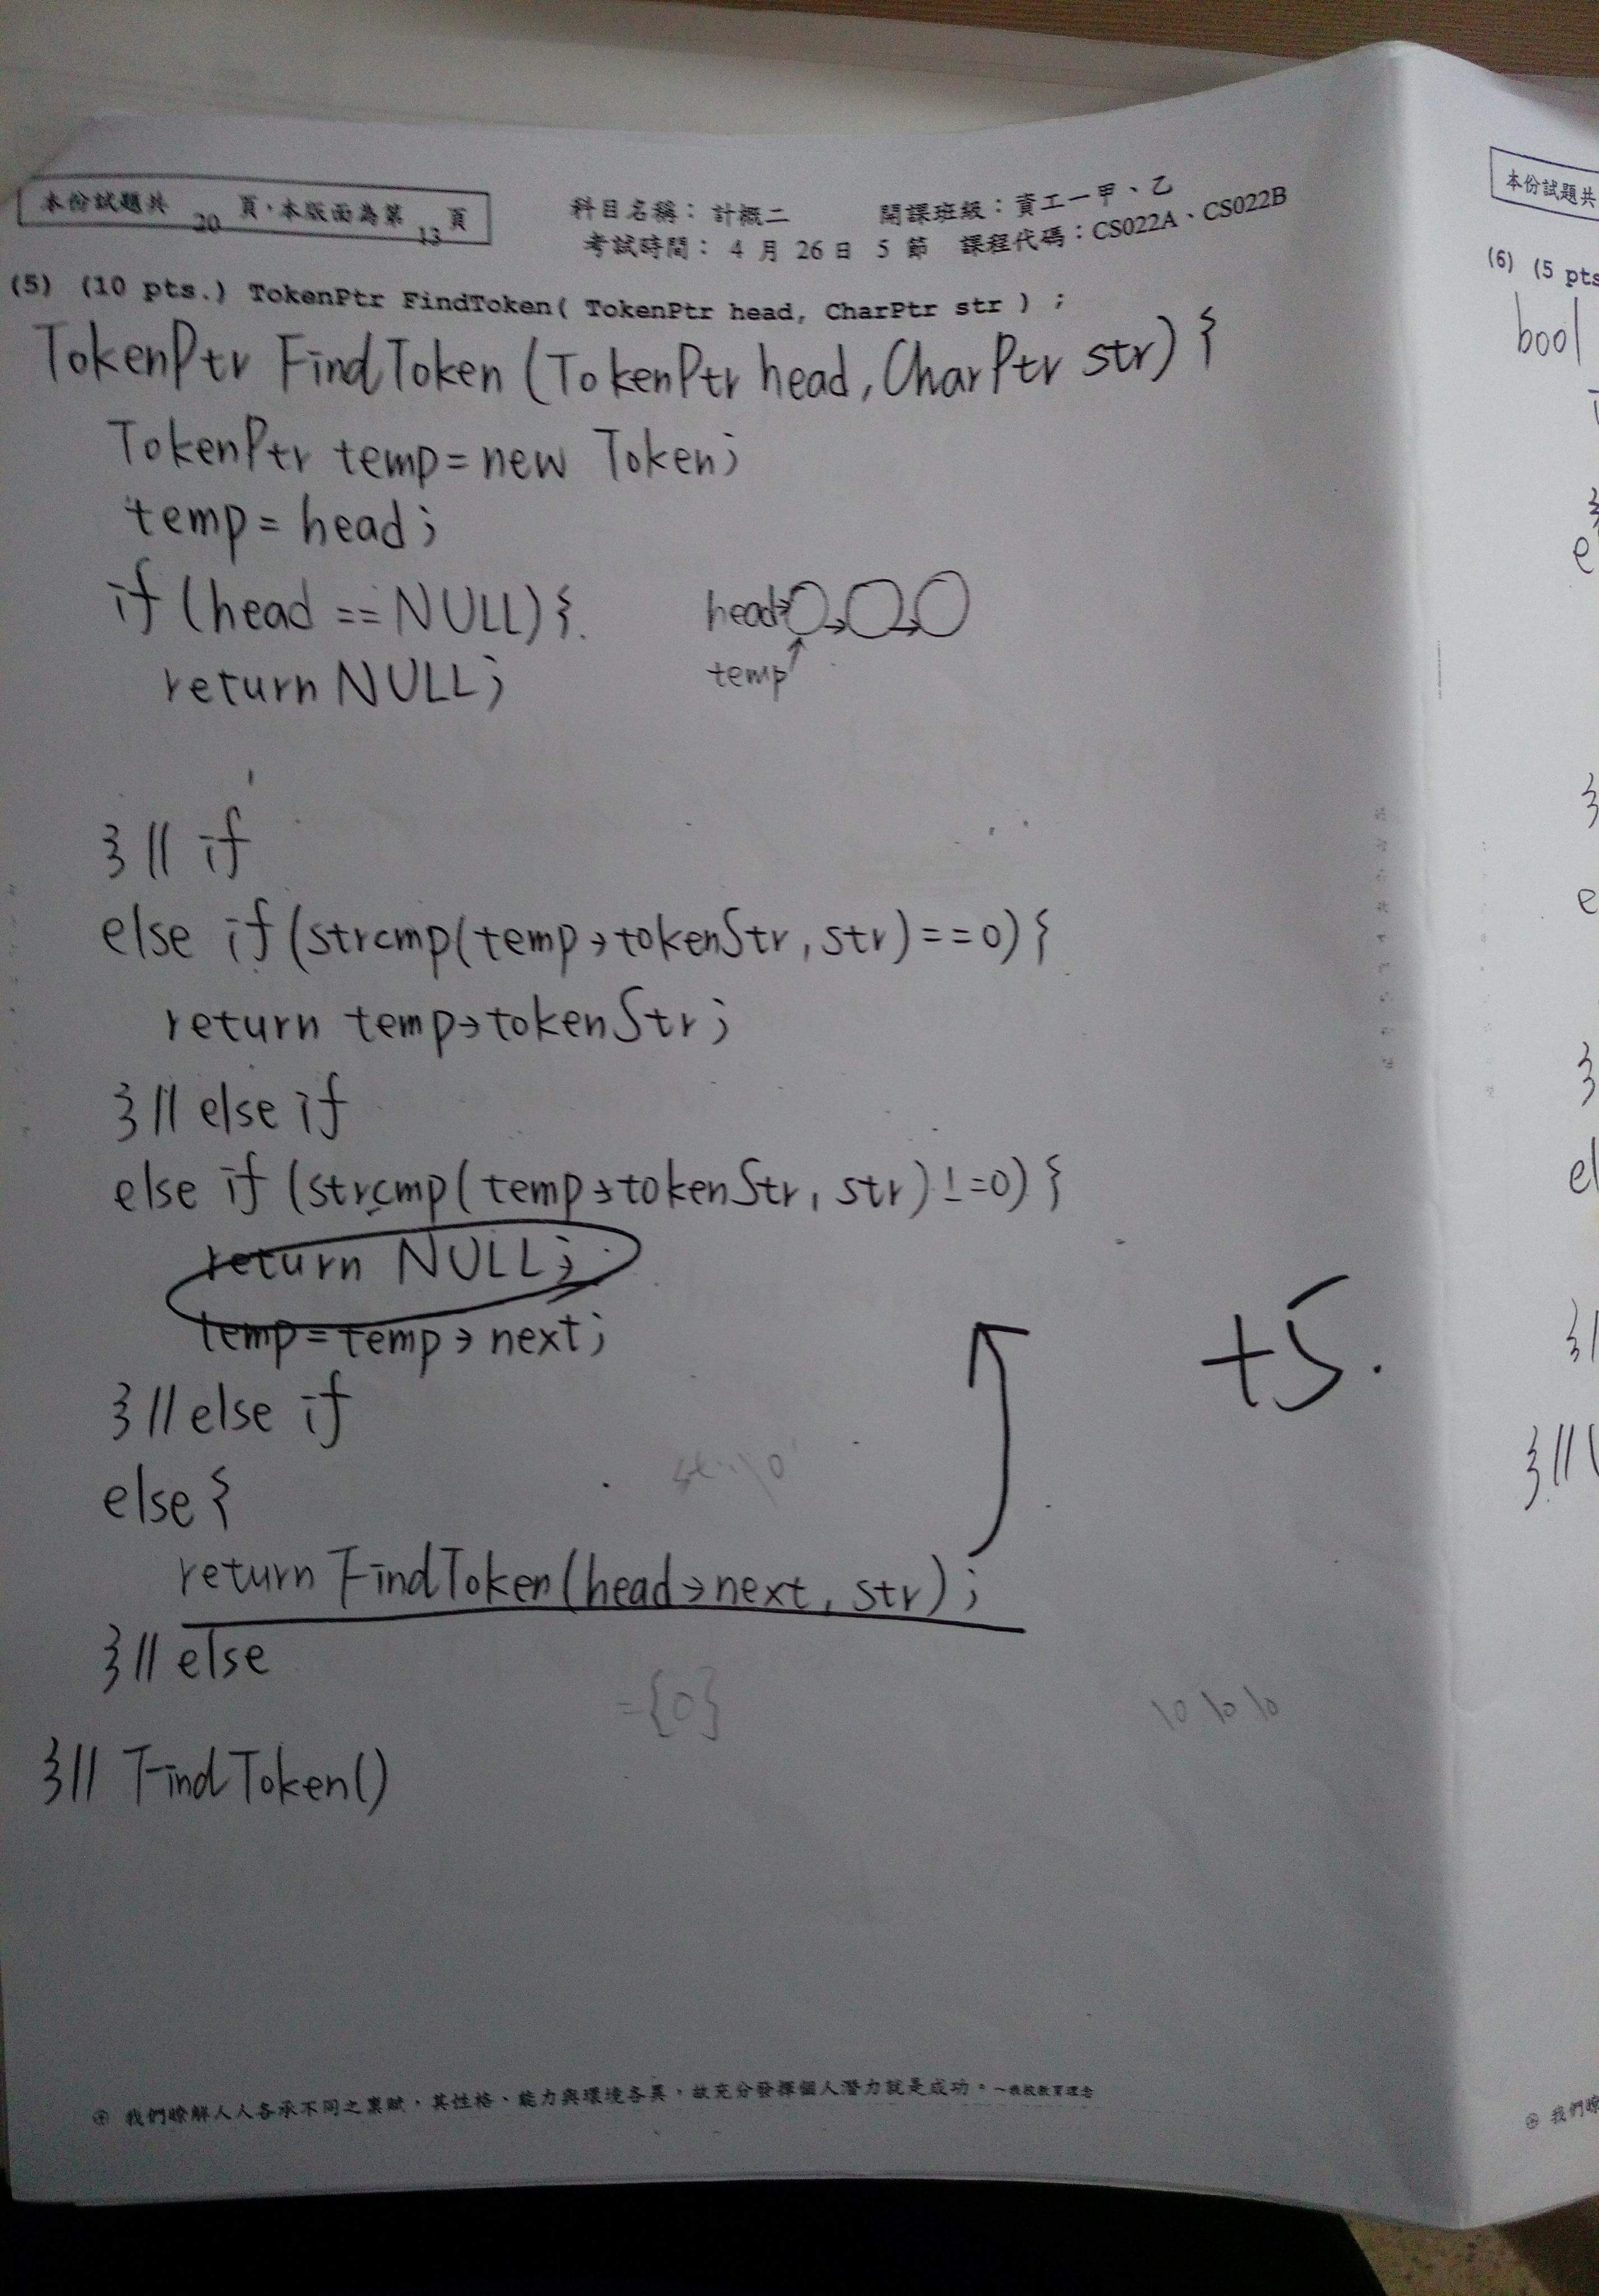 本份試題共 20 頁，本版面為第 13 頁
科目名稱： 計概二 開課班級：資工一甲、乙
考試時間： 4 月 26 日 5 節 課程代碼：CS022A、CS022B
(5) (10 pts.) TokenPtr FindToken( TokenPtr head, CharPtr str ) ;
TokenPtr FindToken (TokenPtr head, CharPtr str) {
TokenPtr temp = new Token;
temp = head;
if (head == NULL) {
head→
return NULL;
temp
} // if
else if (strcmp(temp→tokenStr, str) == 0) {
return temp→tokenStr;
} // else if
else if (strcmp(temp→tokenStr, str) != 0) {
return NULL;
temp = temp→next;
+5.
} // else if
else {
return FindToken(head→next, str);
} // else
={0}
\0 \0 \0
} // FindToken()
我們瞭解人人各承不同之稟賦，其性格、能力與環境各異，故充分發揮個人潛力就是成功。~我校教育理念
本份試題共
(6) (5 pts
bool
}
e
}
e
}
el
} /
} //
我們瞭